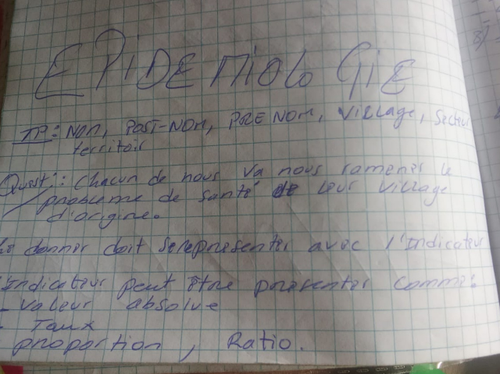 EPIDEMIOLOGIE
TP: NOM, POST-NOM, PRE NOM, Village, Secteur
territoir
Quest: chacun de nous va nous ramener le
problème de santé de leur village
d'origine.
donner doit se représenter avec l'Indicateur
Indicateur peut être présenter comme:
- Valeur absolue
- Taux
proportion, Ratio.